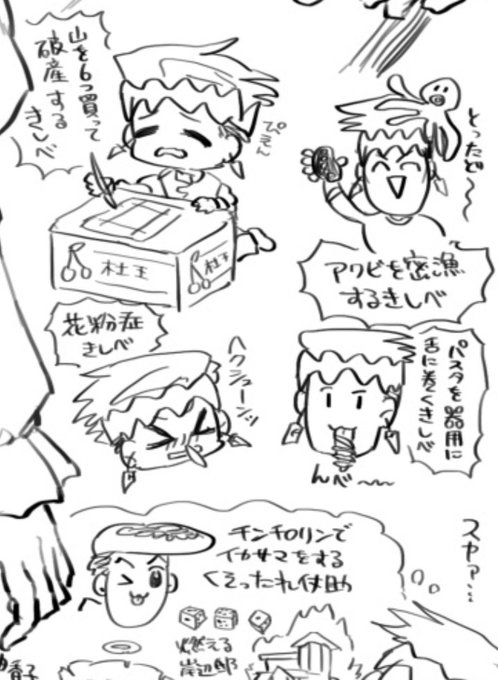 山を6つ買って
破産する
きしべ
ぴえん
杜王
杜王
とったど〜
アワビを密漁
するきしべ
花粉症
きしべ
ヘクシューンッ
パスタを器用に
舌に巻くきしべ
んべ〜
チンチロリンで
イカサマをする
くそったれ仗助
燃える
岸辺邸
スヤァ…